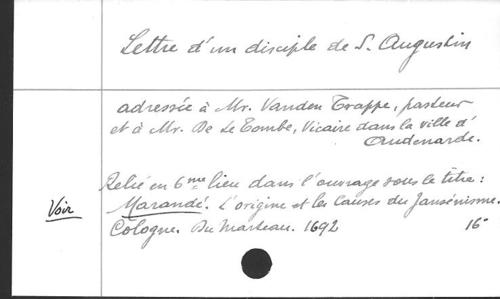 Lettre d'un disciple de S. Augustin
adressée à Mr. Vanden Trappe, pasteur
et à Mr. De Le Tombe, Vicaire dans la ville d'
Audenarde.
Relié en 6me lieu dans l'ouvrage sous le titre:
Voir Marandé. L'origine et les Causes du Jansénisme.
Cologne. Du Marteau. 1692 16°